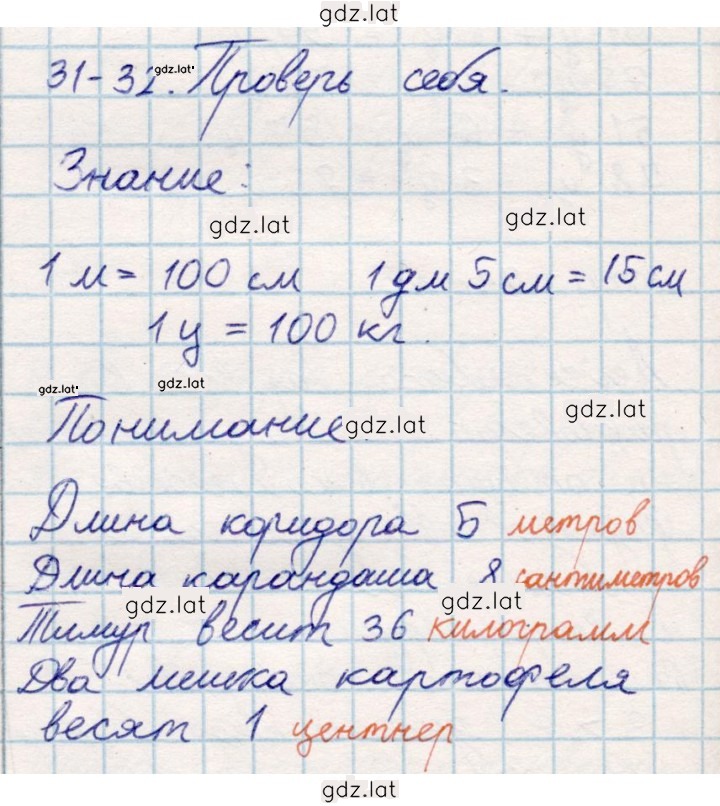 gdz.lat
31-32. Проверь себя.
gdz.lat
Знание:
gdz.lat gdz.lat
1 м = 100 см 1 дм 5 см = 15 см
1 ц = 100 кг.
gdz.lat gdz.lat
Понимание gdz.lat gdz.lat
Длина коридора 5 метров
Длина карандаша 8 сантиметров
gdz.lat gdz.lat
Тимур весит 36 килограмм
Два мешка картофеля
весят 1 центнер
gdz.lat